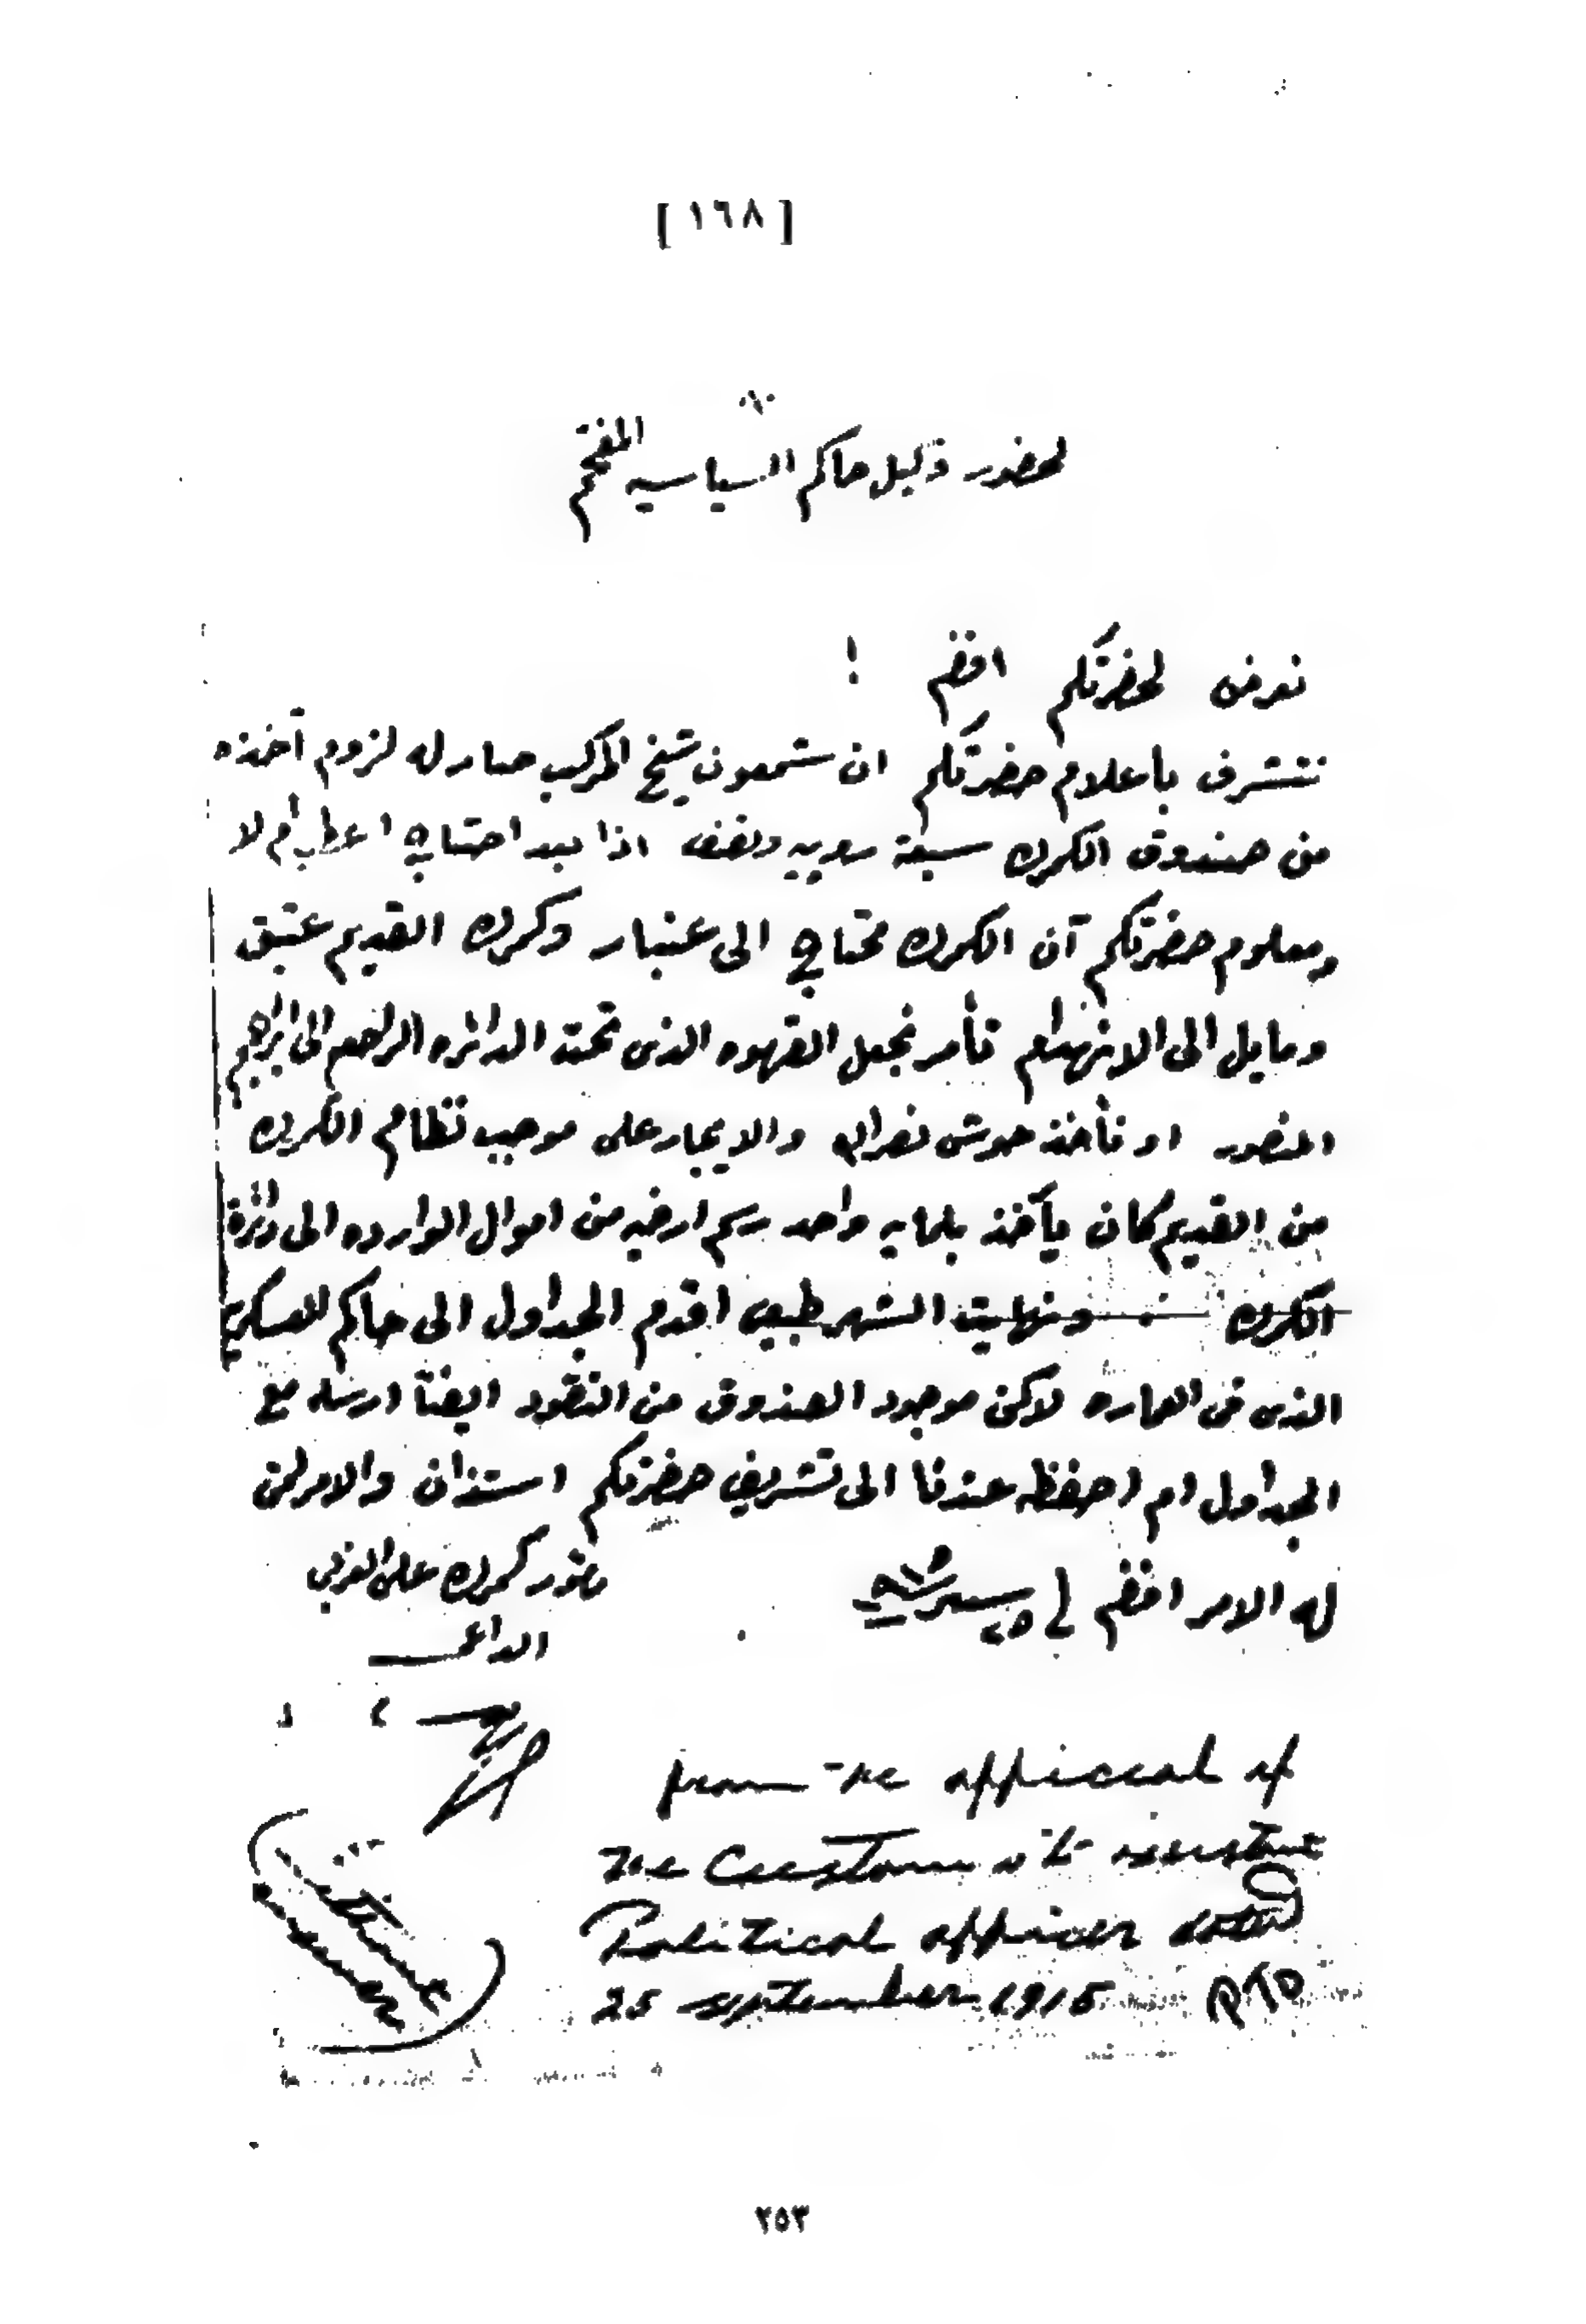 [ ١٦٨ ]
لحضور وكيل حاكم السياسيه المفخم
نعرض لحضرتكم افندم !
نتشرف بأعلام حضرتكم ان شمعون شيخ المركب صار له لزوم آخذه
من صندوق الكمرك سبعة روبيه ونصف اذا بعد احتاج اعطيه أم لا
ومعلوم حضرتكم آن الكمرك محتاج الى عنبار وكمرك القديم عتيق
ومايل الى الانهدام تأمر نجعل القهوه الذى تحت الدائره الراجع الى ابراهيم
المنصور او نأخذ حوش نصرالله والايجار على موجب نظام الكمرك
من القديم كان يآخذ بلمايه واحد رسم ارضيه من اموال الوارده الى دائرة
الكمرك ونهايت الشهر طبعى اقدم الجداول الى حاكم العسكري
الذى فى العماره لاكن موجود الصندوق من النقود ايضآ ارسله مع
الجداول ام احفظه عندنا الى تشريف حضرتكم استذان والامر لمن
له الامر افندم في ٢٥ سبتمبر ٩١٥
مأمور كمرك على الغربي
الداعى
from the official of
the Customs to assistant
Political officer dated
25 september 1915 PTO
٢٥٣